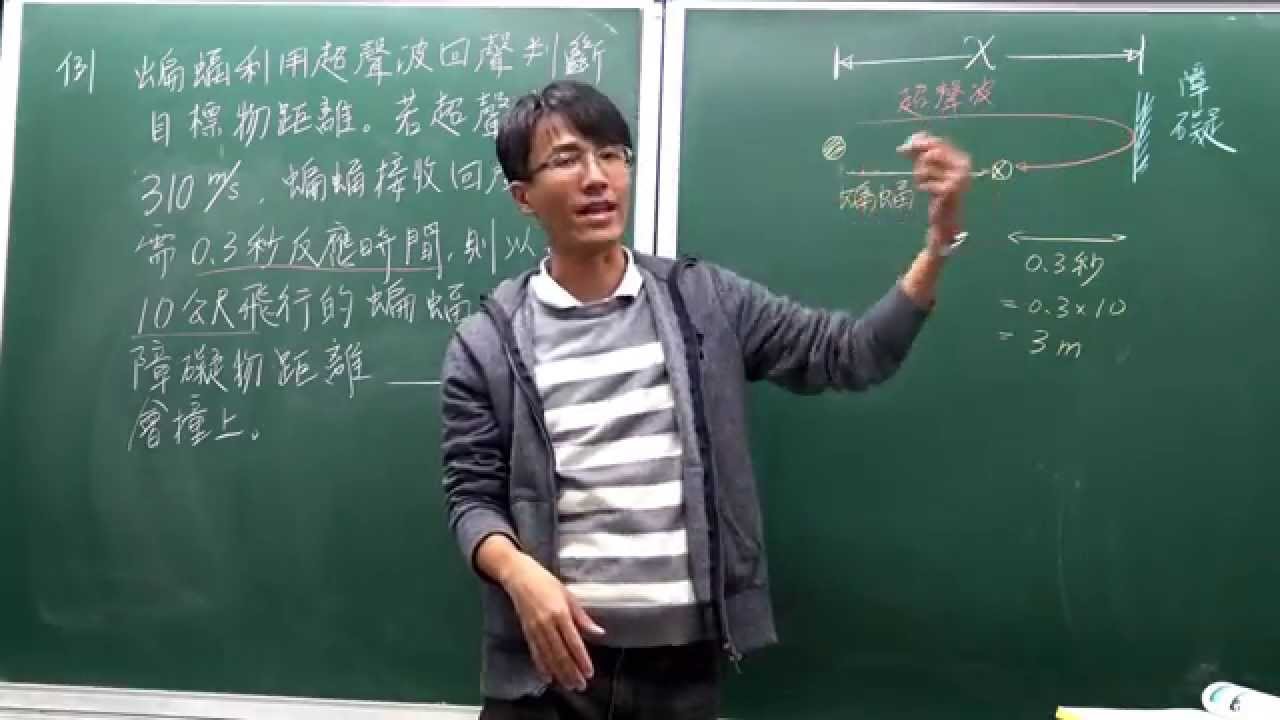 例 蝙蝠利用超聲波回聲判斷
目標物距離。若超聲
310 m/s，蝙蝠接收回
需 0.3秒反應時間，則以
10公尺飛行的蝙蝠
障礙物距離 ____
會撞上。
X
超聲波
障礙
蝙蝠
0.3秒
= 0.3×10
= 3 m